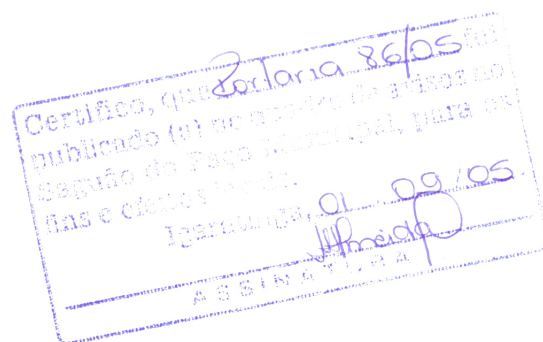 Certifico, que Portaria 86/05 foi
publicado (a) no quadro de avisos no
Saguão do Paço Municipal, para os
fins e efeitos
Igaratinga, 01 09/05
Almeida
ASSINATURA